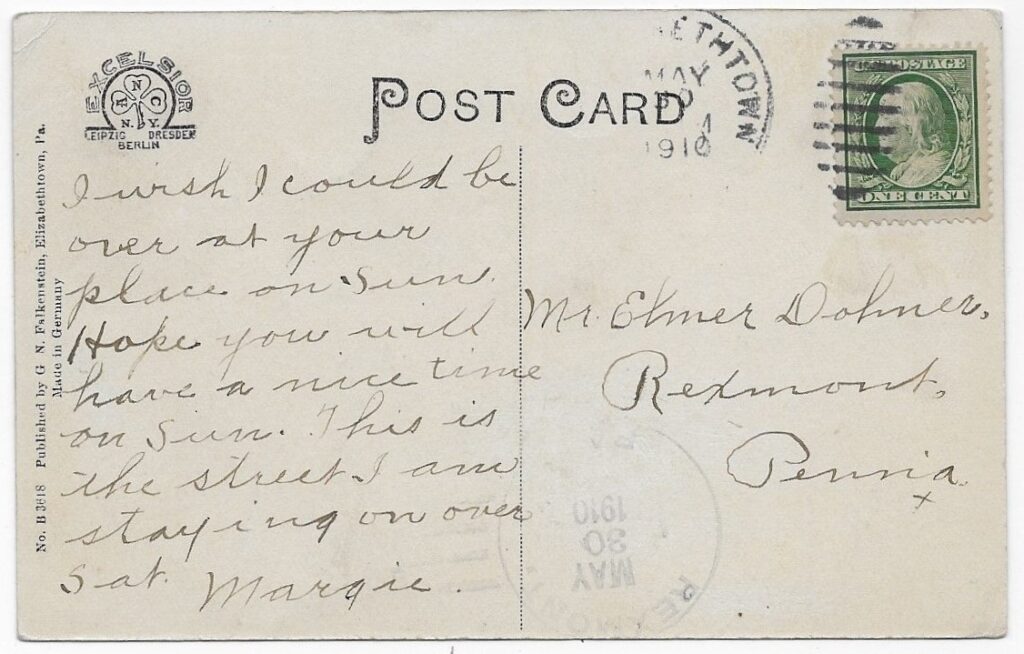 EXCELSIOR
ANC
N.Y.
LEIPZIG DRESDEN
BERLIN
POST CARD
ETHTOWN
MAY
1910
U.S. POSTAGE
ONE CENT
No. B 3618 Published by G. N. Falkenstein, Elizabethtown, Pa.
Made in Germany
I wish I could be
over at your
place on Sun.
Hope you will
have a nice time
on Sun. This is
the street I am
staying on over
Sat. Margie.
Mr. Elmer Dohner,
Rexmont,
Penna.
x
MAY
30
1910